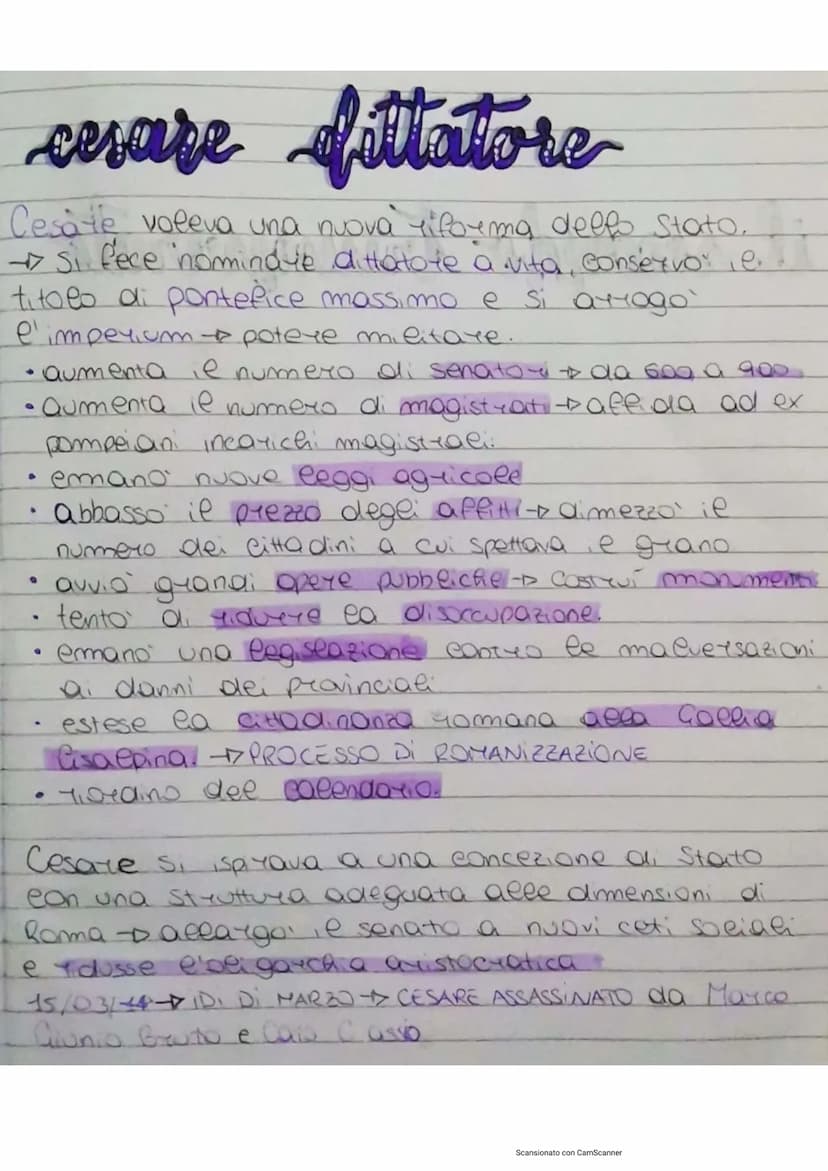 cesare dittatore
Cesare voleva una nuova riforma dello Stato.
→ Si fece nominare dittatore a vita, conservò il
titolo di pontefice massimo e si arrogò
l'imperium → potere militare.
• aumenta il numero di senatori → da 600 a 900
• aumenta il numero di magistrati → affida ad ex
pompeiani incarichi magistrali.
• emanò nuove leggi agricole
• abbassò il prezzo degli affitti → dimezzò il
numero dei cittadini a cui spettava il grano
• avviò grandi opere pubbliche → costruì monumenti
• tentò di ridurre la disoccupazione.
• emanò una legislazione contro le malversazioni
ai danni dei provinciali
• estese la cittadinanza romana alla Gallia
Cisalpina. → PROCESSO Di ROMANiZZAZiONE
• riordino del calendario.
Cesare si ispirava a una concezione di Stato
con una struttura adeguata alle dimensioni di
Roma → allargò il senato a nuovi ceti sociali
e ridusse l'oligarchia aristocratica
15/03/44 → iDi Di MARZO → CESARE ASSASSiNATO da Marco
Giunio Bruto e Caio Cassio
Scansionato con CamScanner